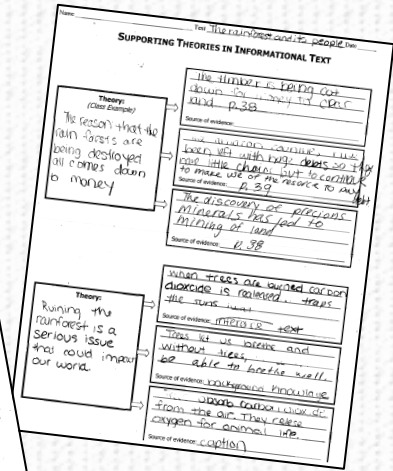 Name
Text The rainforest and its people Date
SUPPORTING THEORIES IN INFORMATIONAL TEXT
Theory:
(Class Example)
The reason that the
rain forests are
being destroyed
all comes down
to money
The timber is being cut
down for money to clear
land p.38
Source of evidence:
been left with huge debts so they
have little choice but to continue
to make use of the resource to pay
debt
Source of evidence: p. 39
The discovery of precious
minerals has led to
mining of land
Source of evidence: p. 38
Theory:
Ruining the
rainforest is a
serious issue
that could impact
our world.
When trees are burned carbon
dioxcide is realeased. traps
the suns
Source of evidence: text
Trees let us breathe and
without trees,
be able to breathe well.
Source of evidence: background knowledge
absorb carbon
from the air. They relese
oxygen for animal life.
Source of evidence: caption